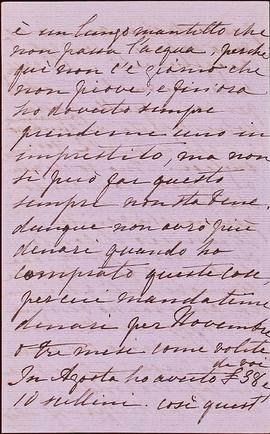 è un lungo mantello che
non passa l'acqua, perche
qui non c'è giorno che
non piove, e finora
ho dovuto sempre
prenderne uno in
imprestito, ma non
si può far questo
sempre non sta bene.
dunque non avrò più
denari quando ho
comprato queste cose,
percui mandatemi
denari per Novembre
o tre mesi come volete
da voi
In Agosto ho avuto £38,
10 scellini. così quest